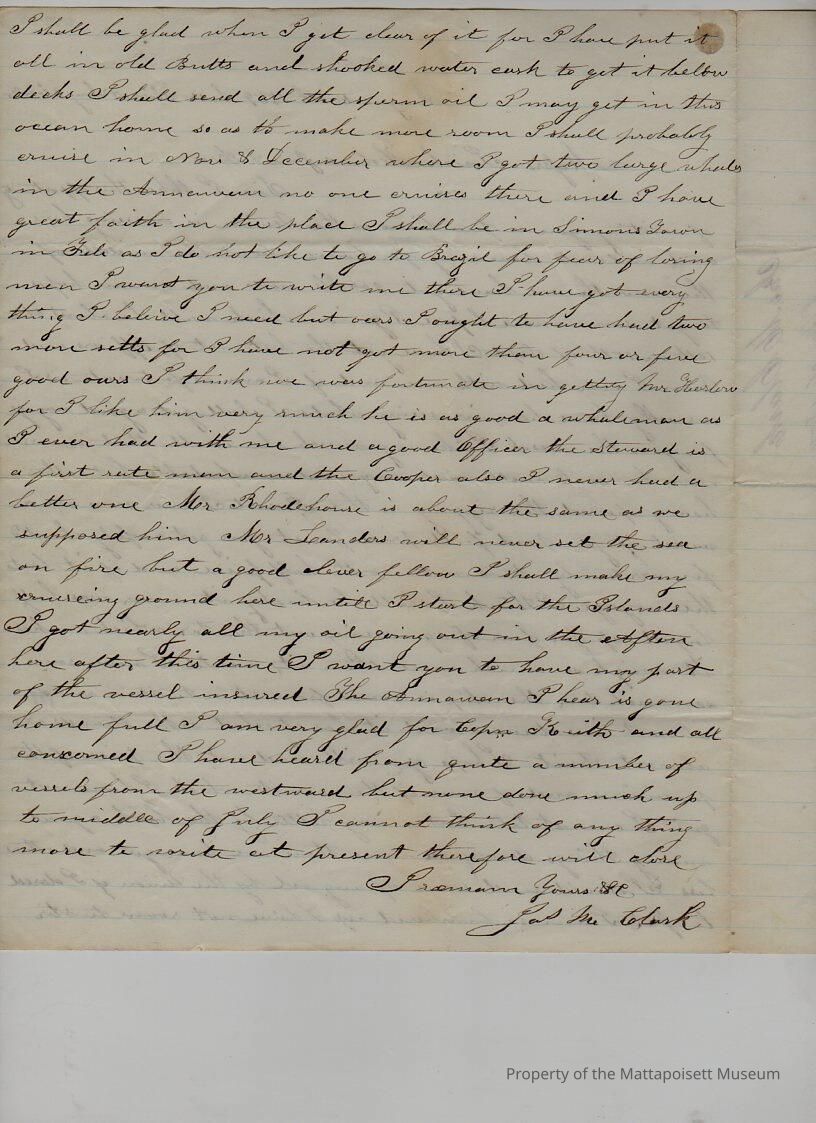 I shall be glad when I get clear of it for I have put it
all in old Butts and shooked water cask to get it below
decks I shall send all the sperm oil I may get in this
ocean home so as to make more room I shall probably
cruise in Nov & December where I got two large whales
in the Annawan no one cruises there and I have
great faith in the place I shall be in Simons Town
in Feb as I do not like to go to Brazil for fear of losing
men I want you to write me there I have got every
thing I beleive I need but oars I ought to have had two
more setts for I have not got more than four or five
good oars I think we was fortunate in getting Mr
for I like him very much he is as good a whaleman as
I ever had with me and a good Officer the Steward is
a first rate man and the Cooper also I never had a
better one Mr Rhodehouse is about the same as we
supposed him Mr Landers will never set the sea
on fire but a good clever fellow I shall make my
cruiseing ground here untill I start for the Islands
I got nearly all my oil going out in the Aften
here after this time I want you to have my part
of the vessel insured The Annawan I hear is gone
home full I am very glad for Capn Keith and all
concerned I have heard from quite a number of
vessels from the westward but none done much up
to middle of July I cannot think of any thing
more to write at present therefore will close
I remain Yours &c
Jas M Clark
Property of the Mattapoisett Museum